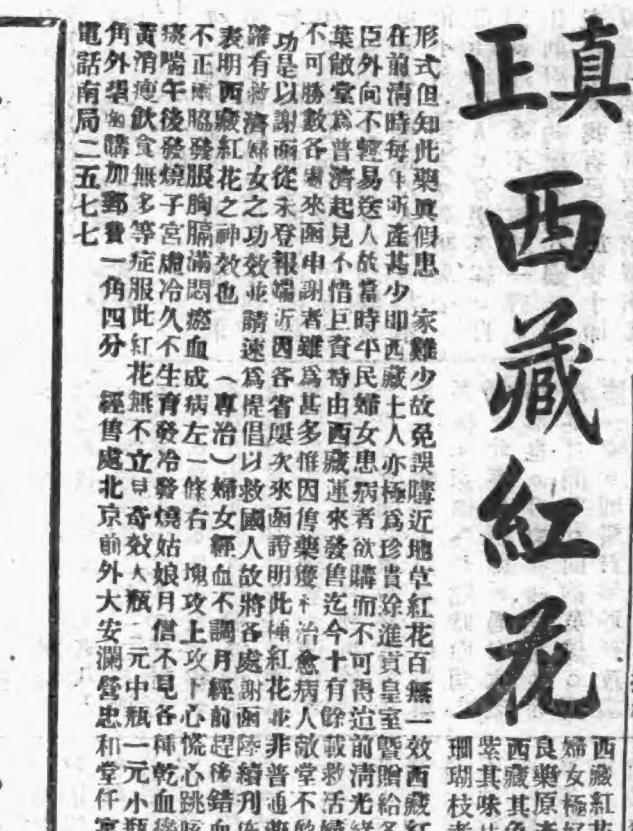 真正
西藏紅花
西藏紅
婦女極
良藥原
西藏其
紫其味
珊瑚枝
形式但知此藥眞假患 家難少故免誤購近地草紅花百無一效西藏紅
在前清時每年所產甚少即西藏土人亦極爲珍貴除進貢皇室曁贈給各
臣外向不輕易送人故當時平民婦女患病者欲購而不可得迨前淸光緒
葉敝堂爲普濟起見不惜巨資特由西藏運來發售迄今十有餘載救活婦
不可勝數各處來函申謝者雖爲甚多惟因售藥治愈病人敝堂不
功是以謝函從未登報端近因各省屢次來函證明此種紅花並非普通藥
有救濟婦女之功效並請速爲提倡以救國人故將各處謝函陸續刊
表明西藏紅花之神效也 (專治)婦女經血不調月經前趕後錯血
不正兩脇發脹胸膈滿悶瘀血成病左一條右 塊攻上攻下心慌心跳咳
痰喘午後發燒子宮虛冷久不生育發冷發燒姑娘月信不見各種乾血癆
黃消瘦飮食無多等症服此紅花無不立見奇效大瓶 元中瓶一元小瓶
角外埠函購加郵費一角四分 經售處北京前外大安瀾營忠和堂仟
電話南局二五七七